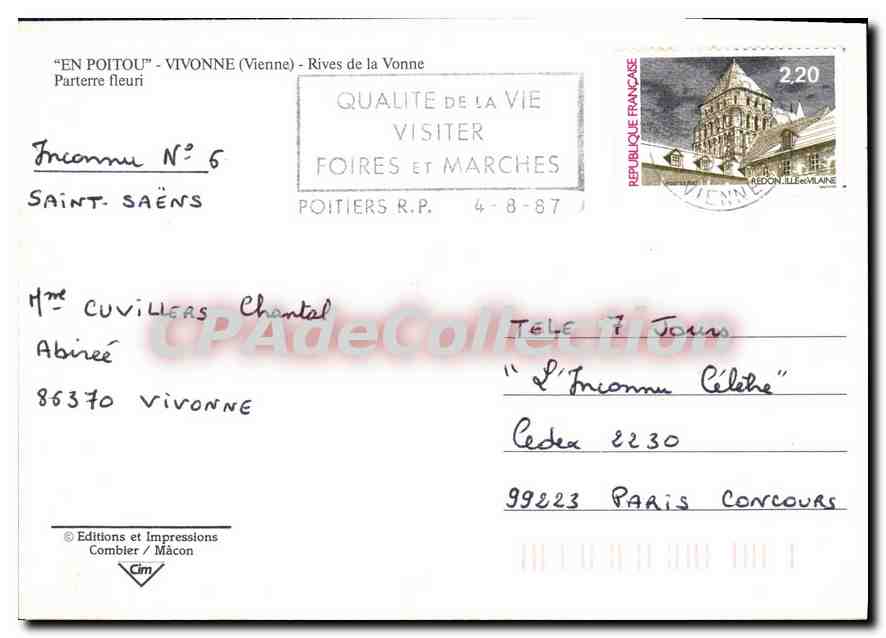 "EN POITOU" - VIVONNE (Vienne) - Rives de la Vonne
Parterre fleuri
QUALITE DE LA VIE
VISITER
FOIRES ET MARCHES
POITIERS R.P. 4-8-87
REPUBLIQUE FRANÇAISE
2,20
REDON _ ILLE et VILAINE
VIENNE
Inconnu N° 6
SAINT-SAËNS
Mme CUVILLERS Chantal
Abireé
86370 VIVONNE
CPAdeCollection
TELE 7 Jours
"L'Inconnu Célèbre"
Cedex 2230
99223 PARIS CONCOURS
© Editions et Impressions
Combier / Mâcon
Cim